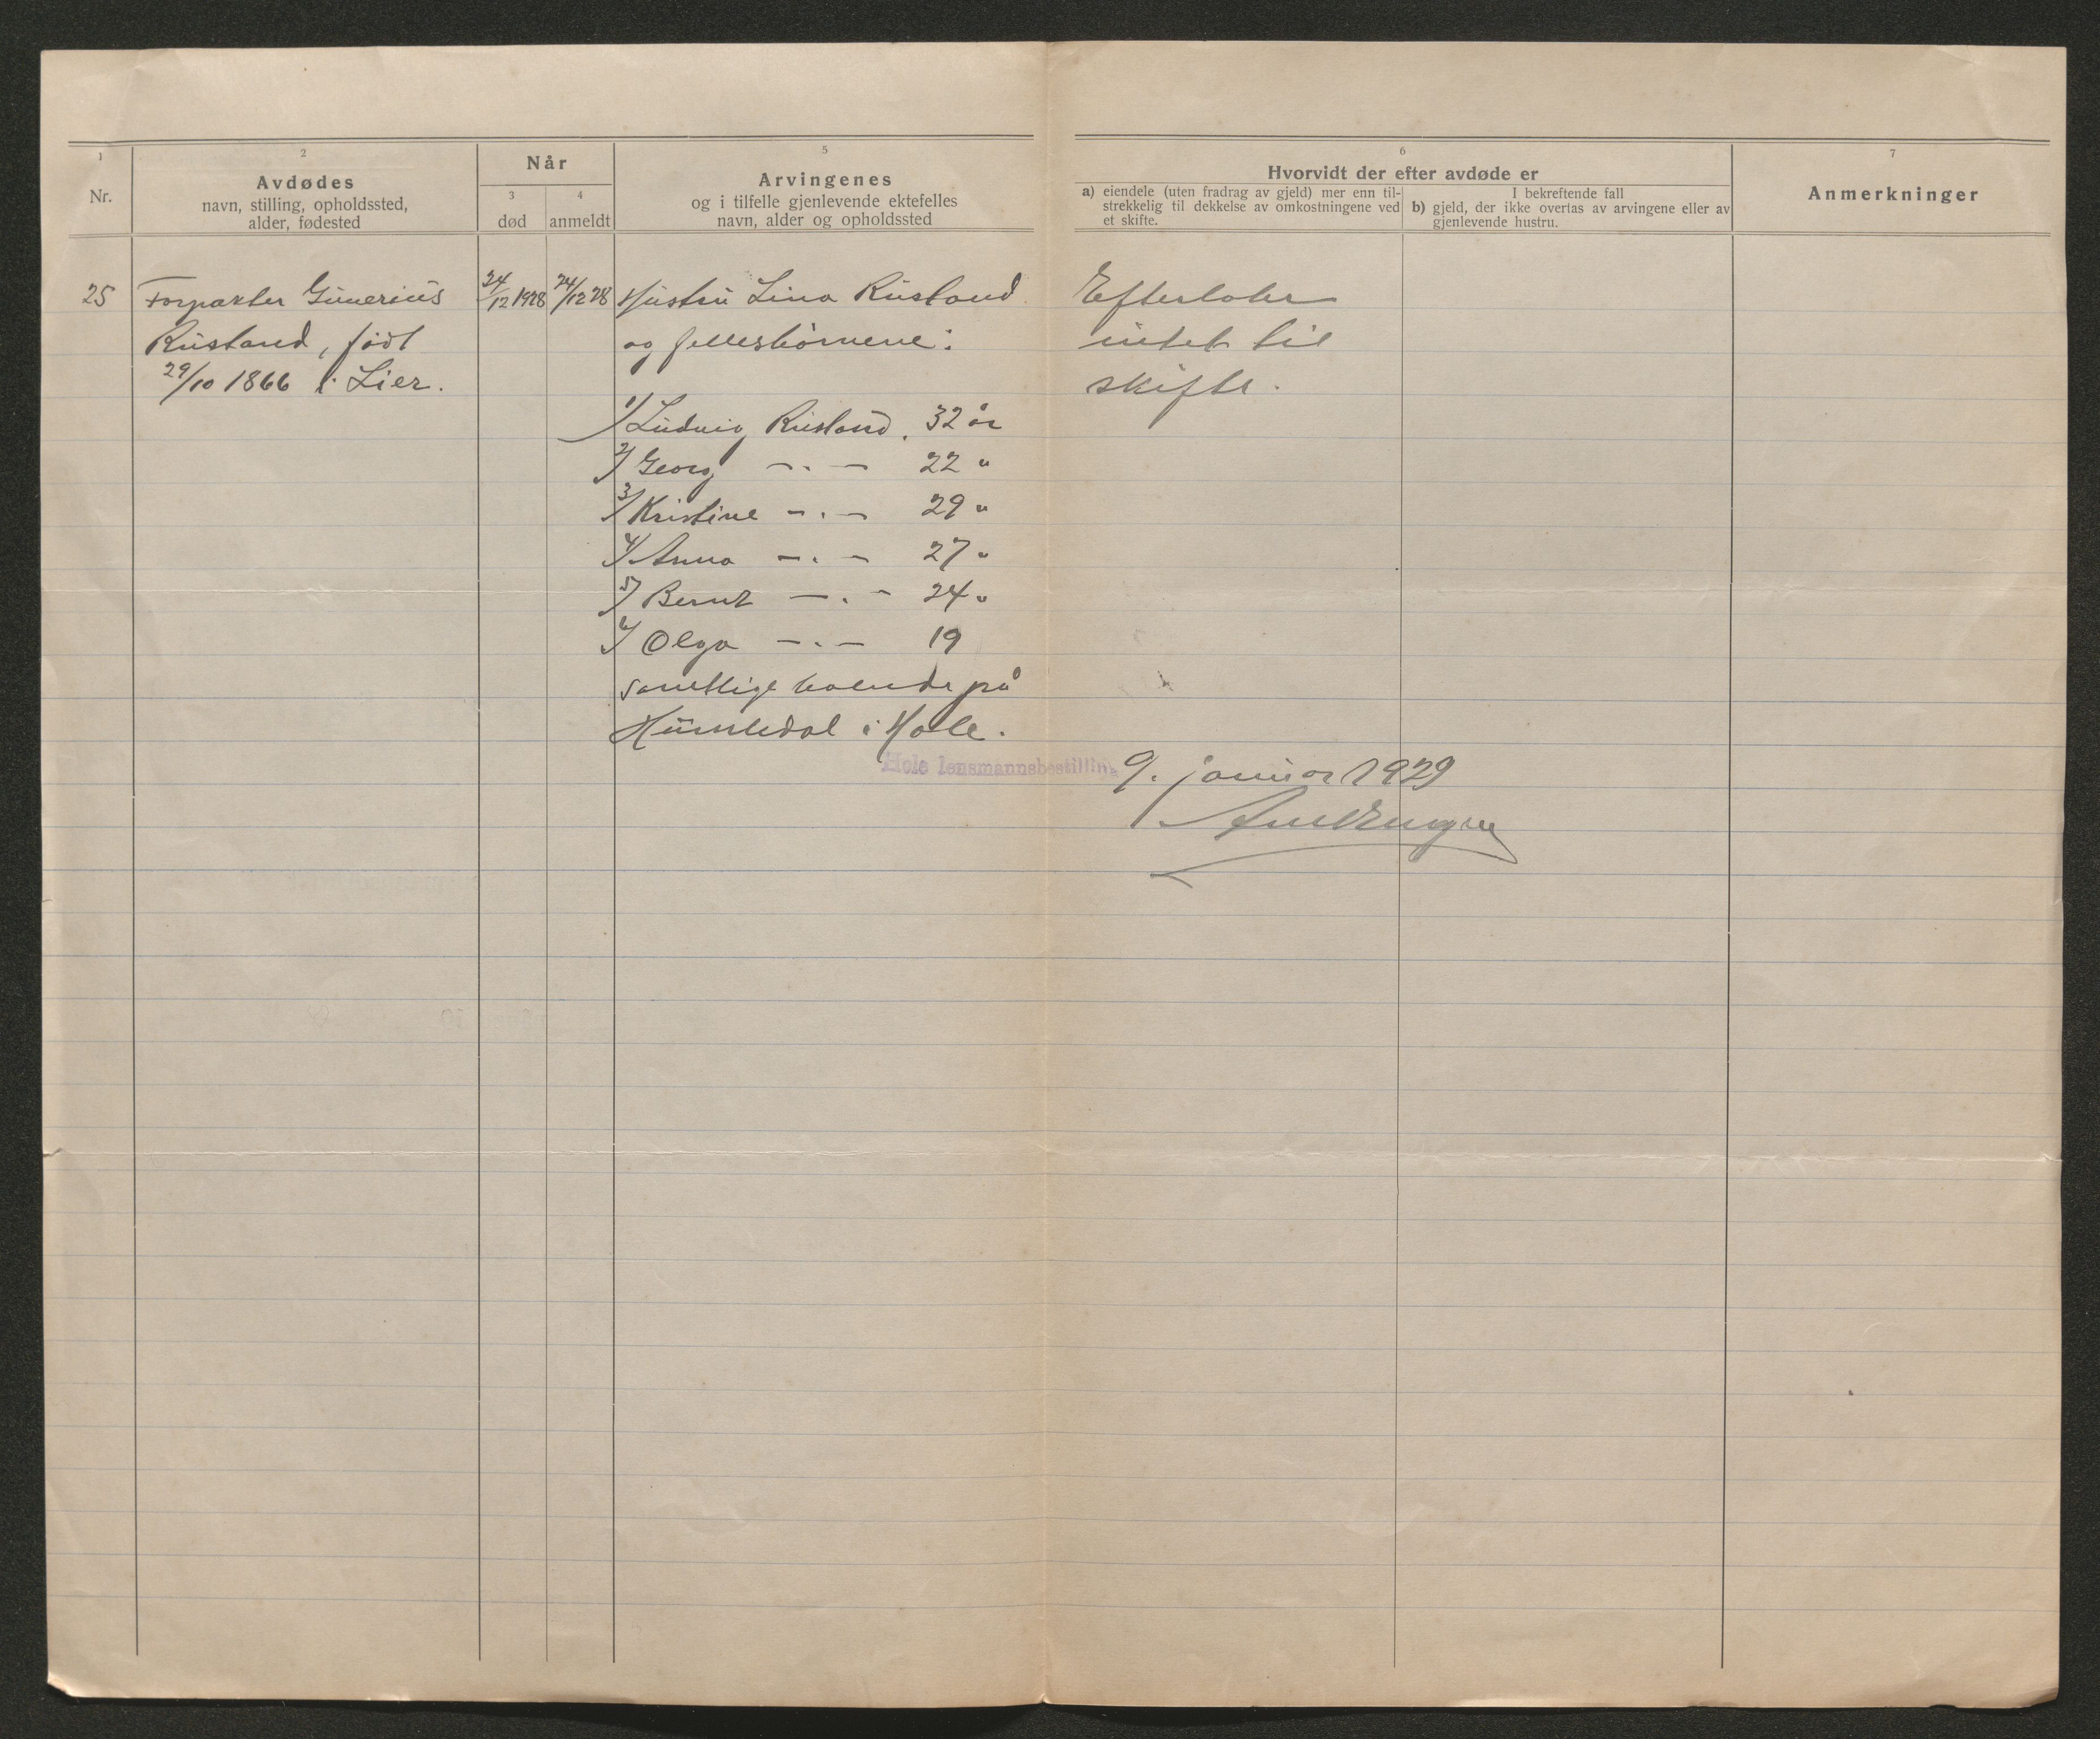 1
Nr.
2
Avdødes
navn, stilling, opholdssted,
alder, fødested
Når
3
død
4
anmeldt
5
Arvingenes
og i tilfelle gjenlevende ektefelles
navn, alder og opholdssted
6
Hvorvidt der efter avdøde er
a) eiendele (uten fradrag av gjeld) mer enn til-
strekkelig til dekkelse av omkostningene ved
et skifte.
I bekreftende fall
b) gjeld, der ikke overtas av arvingene eller av
gjenlevende hustru.
7
Anmerkninger
25
Forpakter Gunerius
Rustand, født
29/10 1866 i Lier.
24/12 1928
24/12 28
Hustru Lina Rustand
og fellesbørnene:
1/ Ludvig Rustand. 32 år
2/ Georg —.— 22 "
3/ Kristine —.— 29 "
4/ Anna —.— 27 "
5/ Bernt —.— 24 "
6/ Olga —.— 19
samtlige boende på
Humledal i Hole.
Efterlater
intet til
skifte.
Hole lensmannsbestilling
9. januar 1929